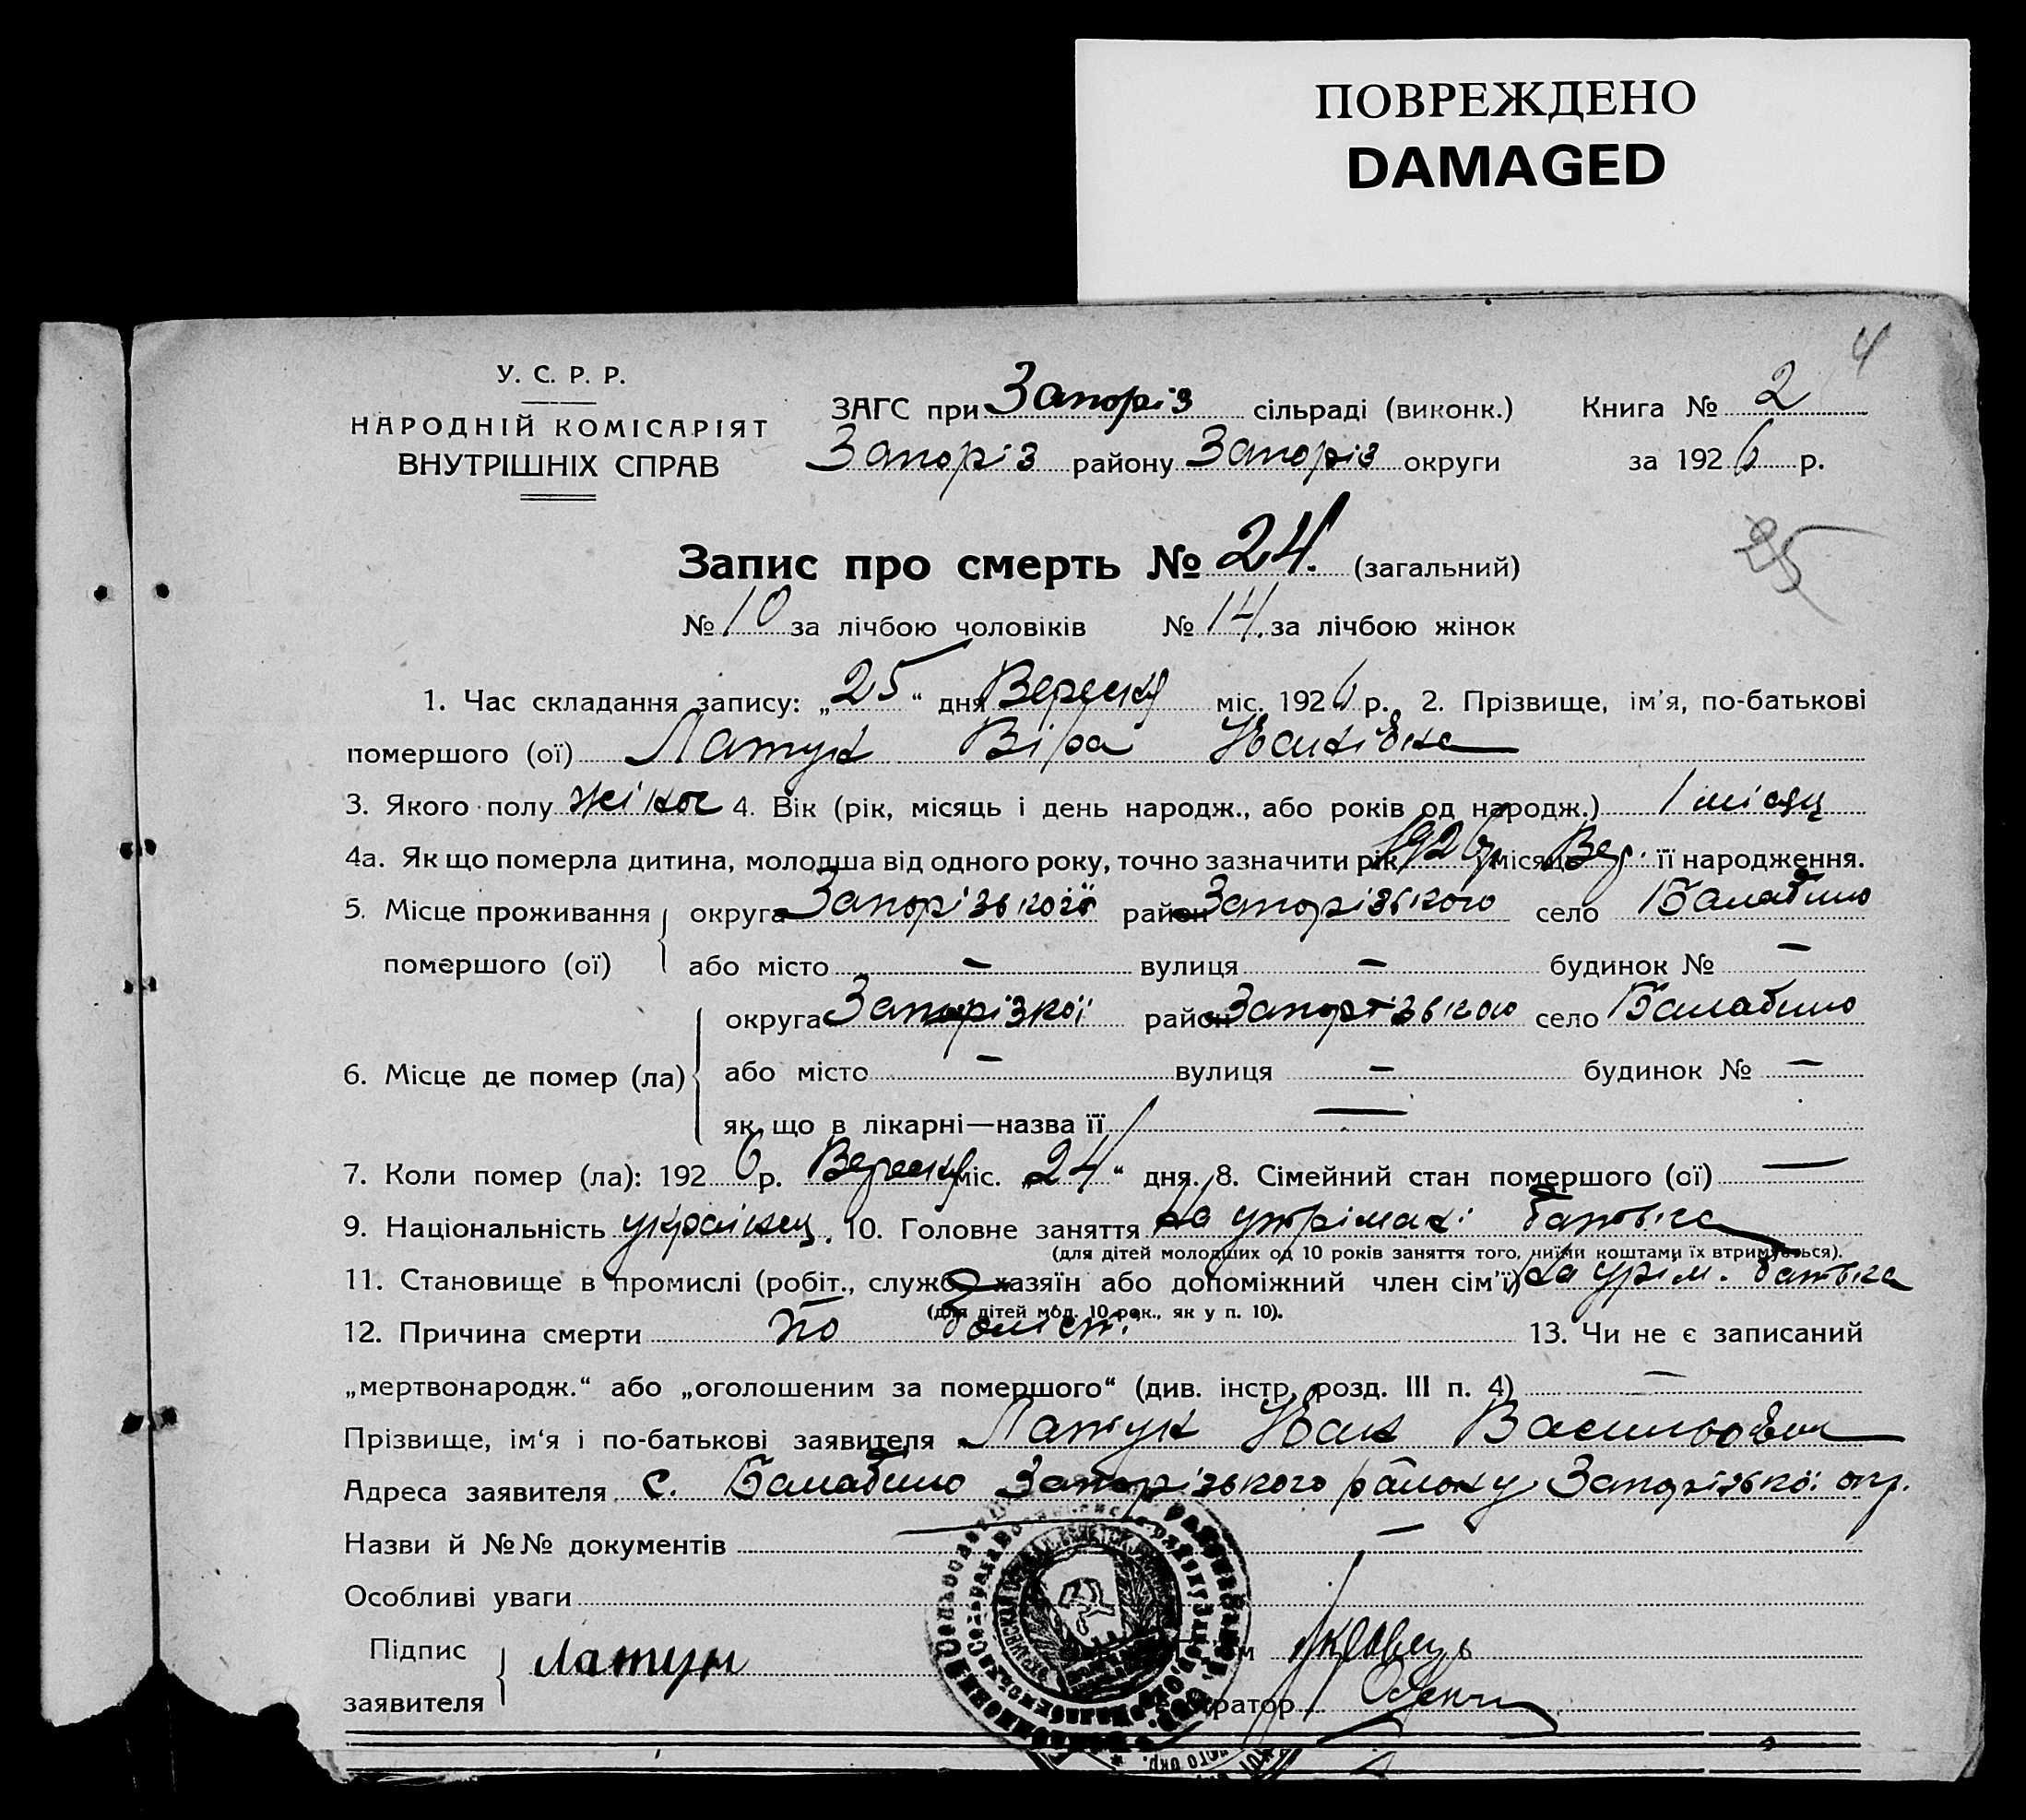 ПОВРЕЖДЕНО
DAMAGED
4
У. С. Р. Р.
НАРОДНІЙ КОМІСАРІЯТ
ВНУТРІШНІХ СПРАВ
ЗАГС при Запоріз сільраді (виконк.) Книга № 2
Запоріз району Запоріз округи за 1926 р.
Запис про смерть № 24. (загальний)
25
№ 10 за лічбою чоловіків № 14. за лічбою жінок
1. Час складання запису: „25“ дня Вересня міс. 1926 р. 2. Прізвище, ім'я, по-батькові
помершого (ої) Латун Віра Іванівна
3. Якого полу жіноч 4. Вік (рік, місяць і день народж., або років од народж.) 1 місяц
4а. Як що померла дитина, молодша від одного року, точно зазначити рік 1926 р місяць Вер. її народження.
5. Місце проживання округа Запорізької район Запорізького село Балабино
помершого (ої) або місто — вулиця — будинок № —
округа Запорізкої район Запорізького село Балабино
6. Місце де помер (ла) або місто — вулиця — будинок № —
як що в лікарні—назва її —
7. Коли помер (ла): 1926 р. Вересня міс. „24“ дня. 8. Сімейний стан помершого (ої) —
9. Національність українец. 10. Головне заняття На утрімані батька
(для дітей молодших од 10 років заняття того, чиїми коштами їх втримується).
11. Становище в промислі (робіт., служб., хазяїн або допоміжний член сім'ї) На утрім. батька
(для дітей мол. 10 рок., як у п. 10).
12. Причина смерти по 13. Чи не є записаний
„мертвонародж.“ або „оголошеним за помершого“ (див. інстр. розд. III п. 4) —
Прізвище, ім'я і по-батькові заявителя Латун Іван Васильович
Адреса заявителя с. Балабино Запорізького району Запорізької окр.
Назви й №№ документів —
Особливі уваги
Підпис
заявителя Латун